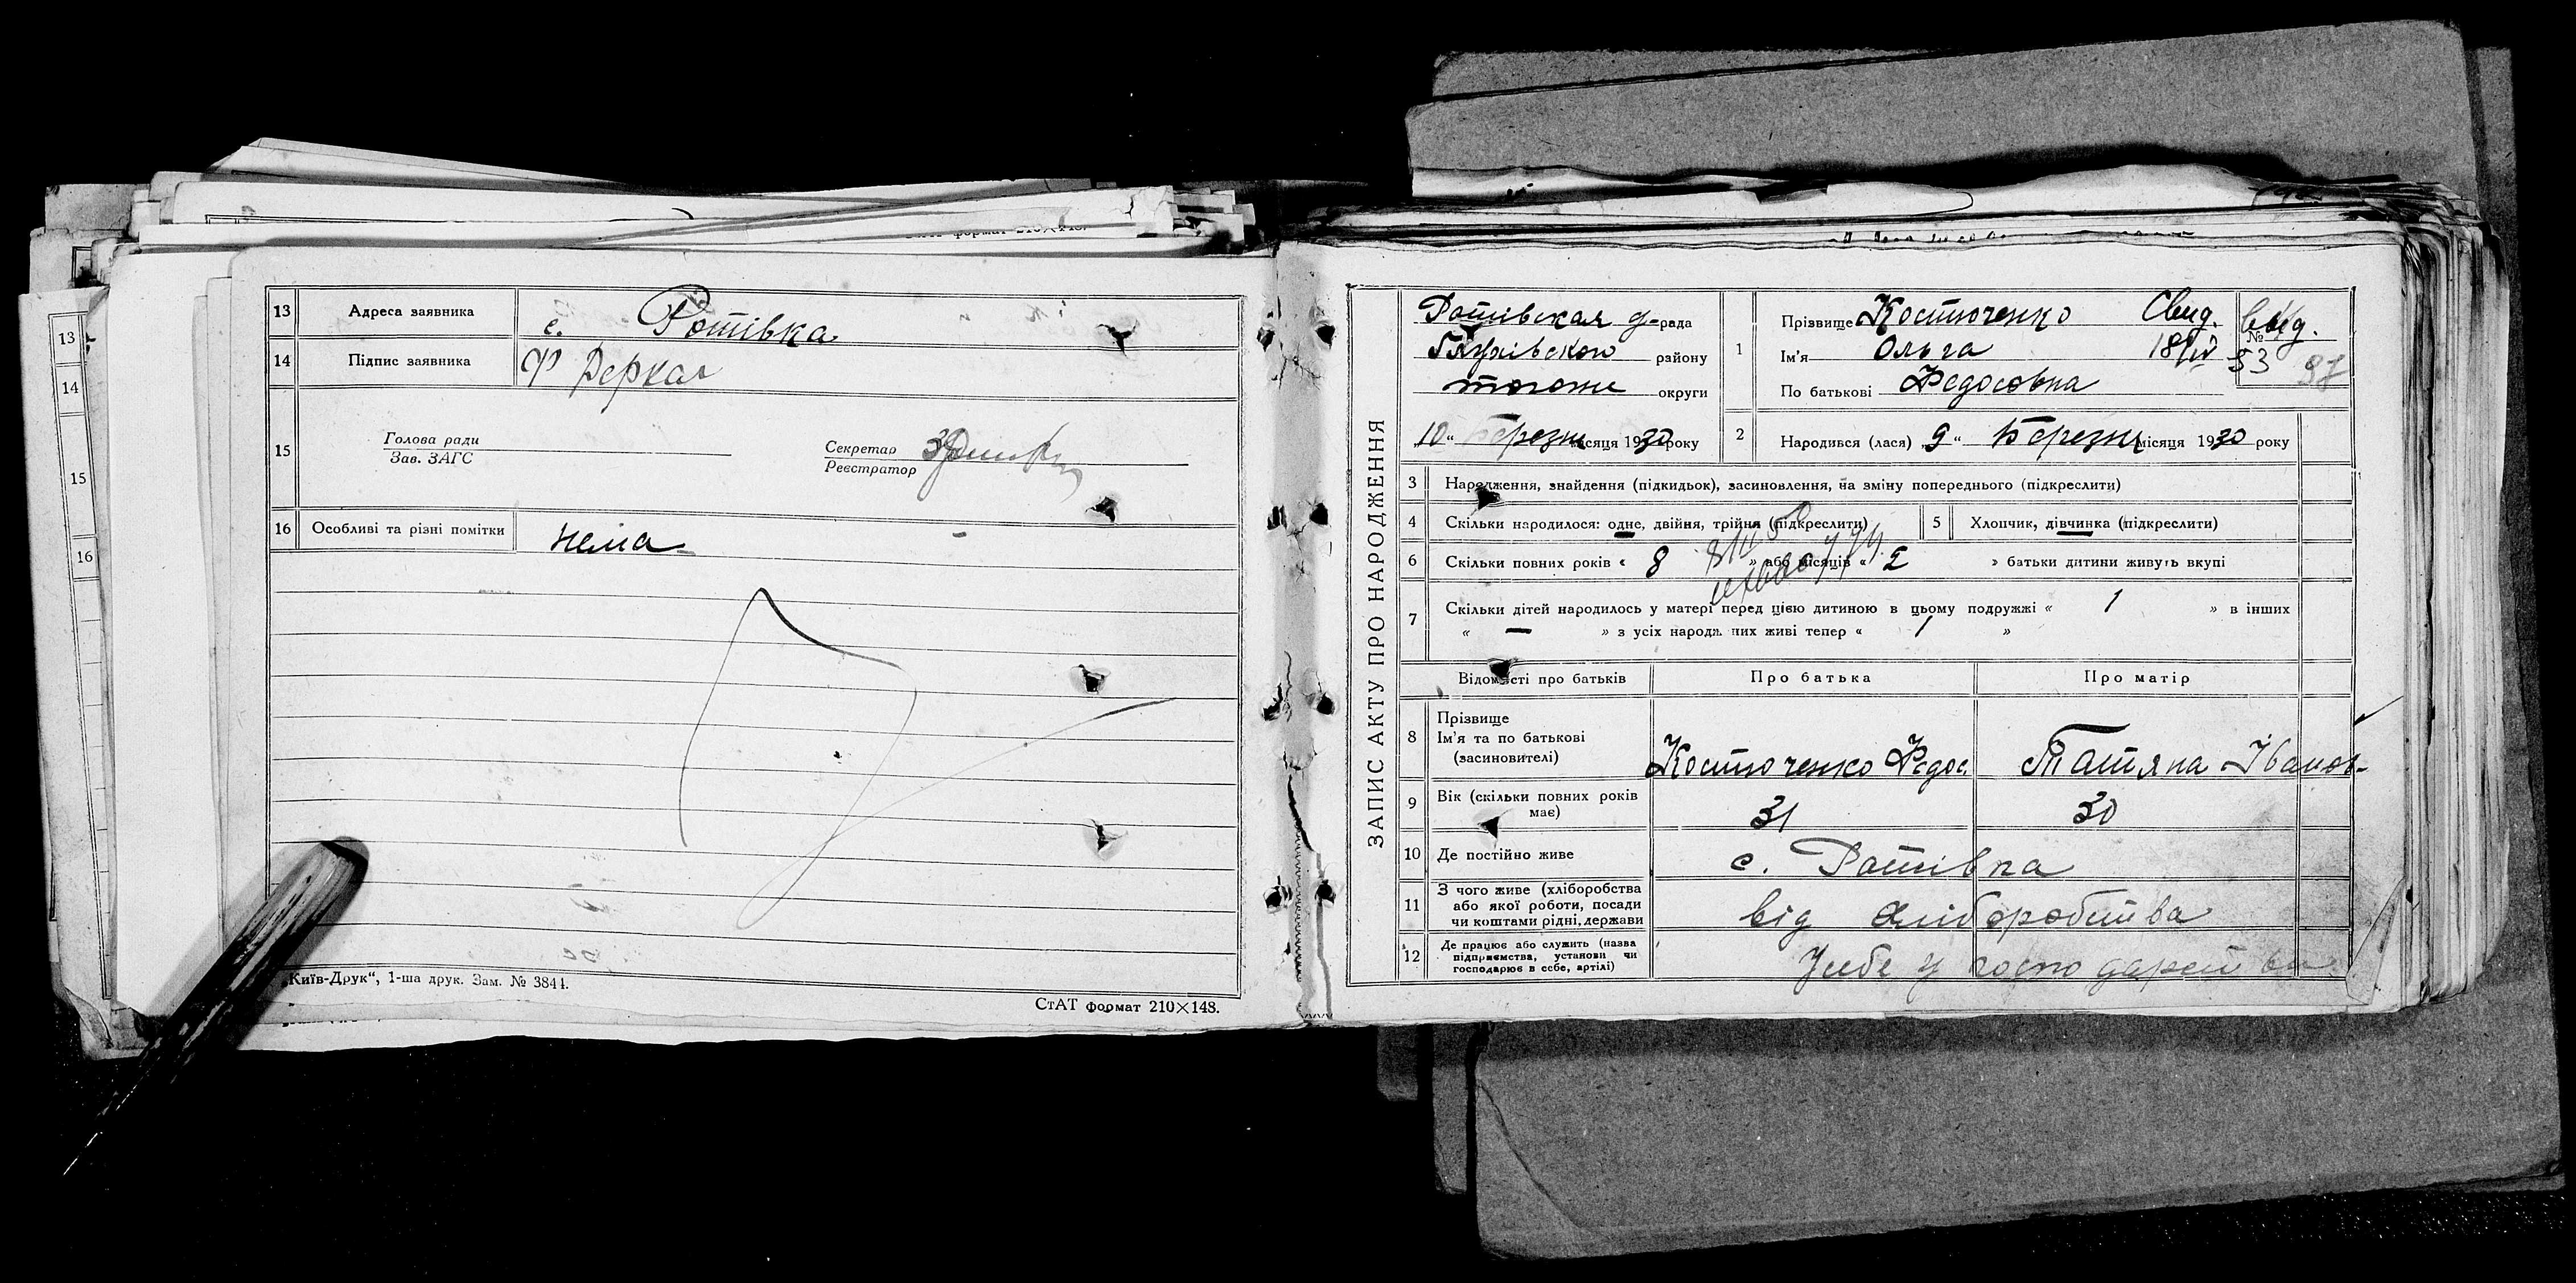 13 Адреса заявника с. Ротівка
14 Підпис заявника Ф Деркач
15 Голова ради
Зав. ЗАГС
Секретар
Реєстратор
16 Особливі та різні помітки нема
„Київ-Друк“, 1-ша друк. Зам. № 3844.
СтАТ формат 210×148.
13
14
15
16
ЗАПИС АКТУ ПРО НАРОДЖЕННЯ
рада
району
округи
„10“ Березня місяця 1930 року
1 Прізвище Костюченко
Ім'я Ольга
По батькові Федосовна
Свид.
18/IV
53
№
97
2 Народився (лася) „9“ Березня місяця 1930 року
3 Народження, знайдення (підкидьок), засиновлення, на зміну попереднього (підкреслити)
4 Скільки народилося: одне, двійня, трійня (підкреслити)
5 Хлопчик, дівчинка (підкреслити)
6 Скільки повних років « 8 » або місяців « 2 » батьки дитини живуть вкупі
7 Скільки дітей народилось у матері перед цією дитиною в цьому подружжі « 1 » в інших
« — » з усіх народжених живі тепер « 1 »
Відомості про батьків Про батька Про матір
8 Прізвище
Ім'я та по батькові
(засиновителі)
Костюченко Федос. Татяна Іванов-
9 Вік (скільки повних років
має)
31 30
10 Де постійно живе с. Ротівка
11 З чого живе (хліборобства
або якої роботи, посади
чи коштами рідні, держави
від хліборобства
12 Де працює або служить (назва
підприємства, установи чи
господарює в себе, артілі)
У себе у господарстві